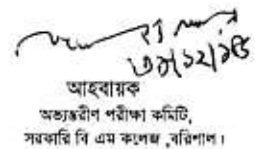 আহবায়ক
অভ্যন্তরীণ পরীক্ষা কমিটি,
সরকারি বি এম কলেজ ,বরিশাল।